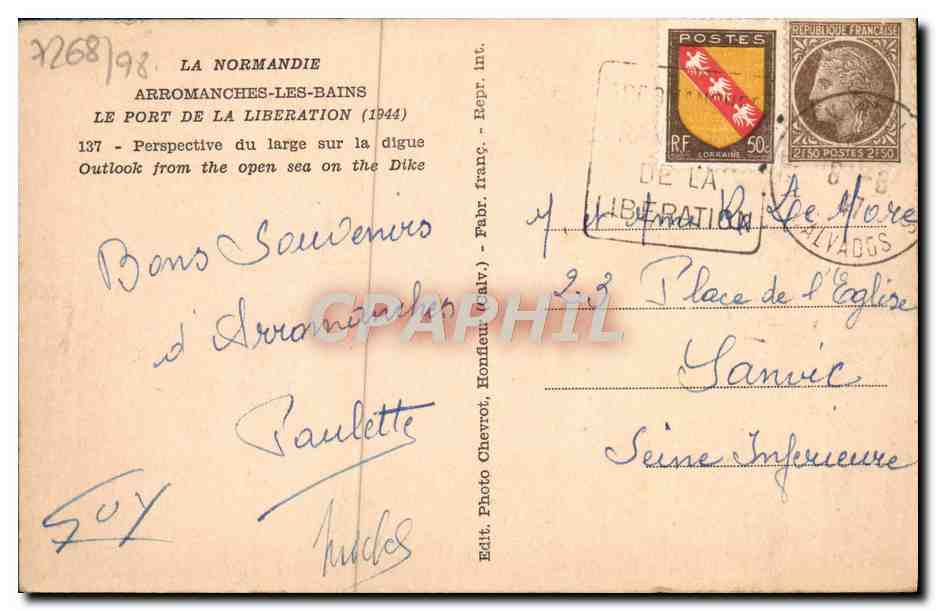 7268/98.
LA NORMANDIE
ARROMANCHES-LES-BAINS
LE PORT DE LA LIBERATION (1944)
137 - Perspective du large sur la digue
Outlook from the open sea on the Dike
Bons Souvenirs
d'Arromanches
Paulette
Guy
Edit. Photo Chevrot, Honfleur (Calv.) - Fabr. franç. - Repr. int.
POSTES
RF
50c
LORRAINE
REPUBLIQUE FRANÇAISE
2f50 POSTES 2f50
DE LA
LIBERATION
8 - 8
CALVADOS
M et Mme R. Le More
23 Place de l'Eglise
Sanvic
Seine Inferieure
CPAPHIL